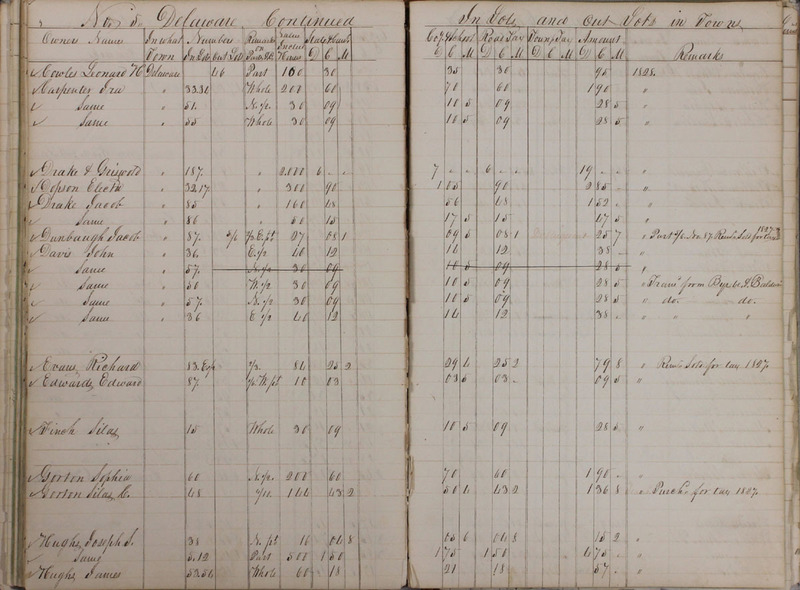 No. 5. Delaware Continued In Lots, and Out Lots in Towns
Owners Names In what Town Numbers In Lots Out Lots Remarks on Value State & Canal D C M Co. & School D C M Road Tax D C M Town Tax D C M Amount D C M Remarks
Cowles Leonard H Delaware 46 Part 100 30 35 30 95 1828.
Carpenter Ira " Whole 200 60 70 60 1 90 "
Same " 51. N. 1/2. 30 09 10 5 09 28 5 "
Same " 55 Whole 30 09 10 5 09 28 5 "
Drake & Griswold " 187. " 2.000 6 - - 7 - - 6 - - 19 - - "
Hopson Electa " 32.17 " 300 90 1 05 90 2 85 - "
Drake Jacob " 85 " 160 48 56 48 1 52 - "
Same " 86 " 50 15 17 5 15 47 5 "
Dunbaugh Jacob " 87. 27 08 1 09 5 08 1 25 7 "
Davis John " 36. E. 1/2 40 12 14 12 38 - "
Same " 57. N. 1/2 30 09 10 5 09 28 5 "
Same " 50 W. 1/2 30 09 10 5 09 28 5 " from
Same " 57. N. 1/2 30 09 10 5 09 28 5 " do. do.
Same " 36 E 1/2 40 12 14 12 38 - " " "
Evans, Richard 83. 1/2. 84 25 2 29 4 25 2 79 8 " for tax 1827.
Edwards, Edward 87. 10 03 03 5 03 - 09 5 "
Finch Silas, 15 Whole 30 09 10 5 09 28 5 "
Gorton Sophia 60 N. 1/2. 200 60 70 60 1 90 - "
Gorton Silas, C. 48 144 43 2 50 4 43 2 1 36 8 " Purch. for tax 1827.
Hughs, Joseph S. 38 N. pt 16 04 8 05 6 04 8 15 2 "
Same 5.12 Part 500 1 50 1 75 1 50 4 75 - "
Hughs, James Whole 60 18 21 18 57 - "